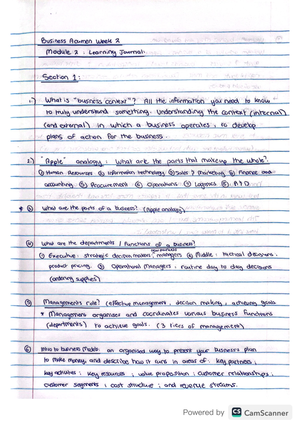 Business Acumen Week 2
Module 2 : Learning Journal.
Section 1:
1.) What is "business context"? All the information you need to know
to truly understand something. Understanding the context (internal)
(and external) in which a business operates, to develop
plans of action for the business.
2.) "Apple" analogy: What are the parts that makeup the whole?
① Human Resources ② Information technology ③ Sales ? marketing ④ Finance and
accounting ⑤ Procurement ⑥ Operations ⑦ Logistics ⑧ R&D
* ③ What are the parts of a Business? (Apple analogy).
④ What are the departments / Functions of a business?
① Executive: strategic decision makers, managers ② Middle: tactical decisions,
product pricing. ③ Operational Managers, routine day to day decisions
(ordering supplies)
⑤ Managements role? (effective management, decision making, achieving goals
* Management organises and coordinates various business functions
(departments) to achieve goals. (3 tiers of management)
⑥ Intro to business model: an organised way to present your business's plan
to make money and describe how it runs in areas of: key partners;
key activities; key resources; value proposition; customer relationships;
customer segments; cost structure; and revenue streams.
Powered by CS CamScanner